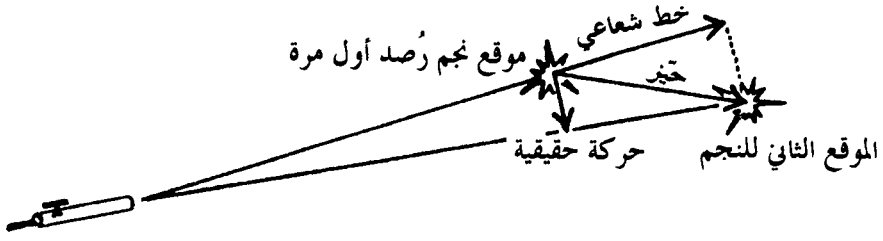 خط شعاعي
موقع نجم رُصد أول مرة
حيز
حركة حقيقية
الموقع الثاني للنجم